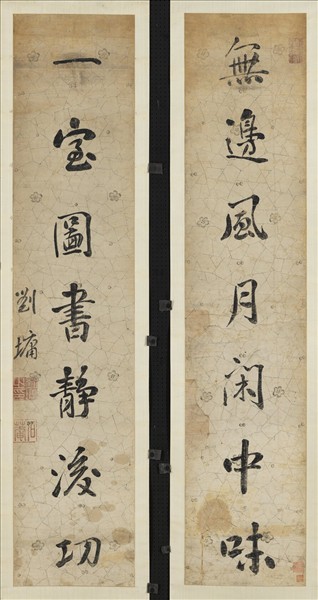 無邊風月閑中味
一室圖書静後切
劉墉